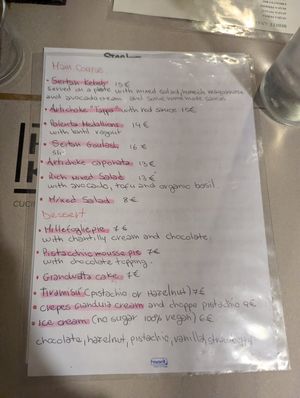 Main Course
• Seitan Kebab 15 €
served on a plate with mixed salad, homemade mayonnaise
and avocado cream and some home made sauces
• Artichoke "Tappa" with red sauce 15€
• Polenta Medallions 14 €
with lentil ragout
• Seitan Goulash 16 €
• Artichoke caponata 13€
• Rich mixed Salad 13€
with avocado, tofu and organic basil
• Mixed Salad 8€
Dessert
• Millefoglie pie 7€
with chantilly cream and chocolate
• Pistacchio mousse pie 7€
with chocolate topping.
• Gianduiatta cake 7€
• Tiramisu (pistachio or Hazelnut) 7€
• crepes gianduia cream and choppe pistachio 9€
• Ice cream (no sugar 100% vegan) 6€
chocolate, hazelnut, pistachio, vanilla,